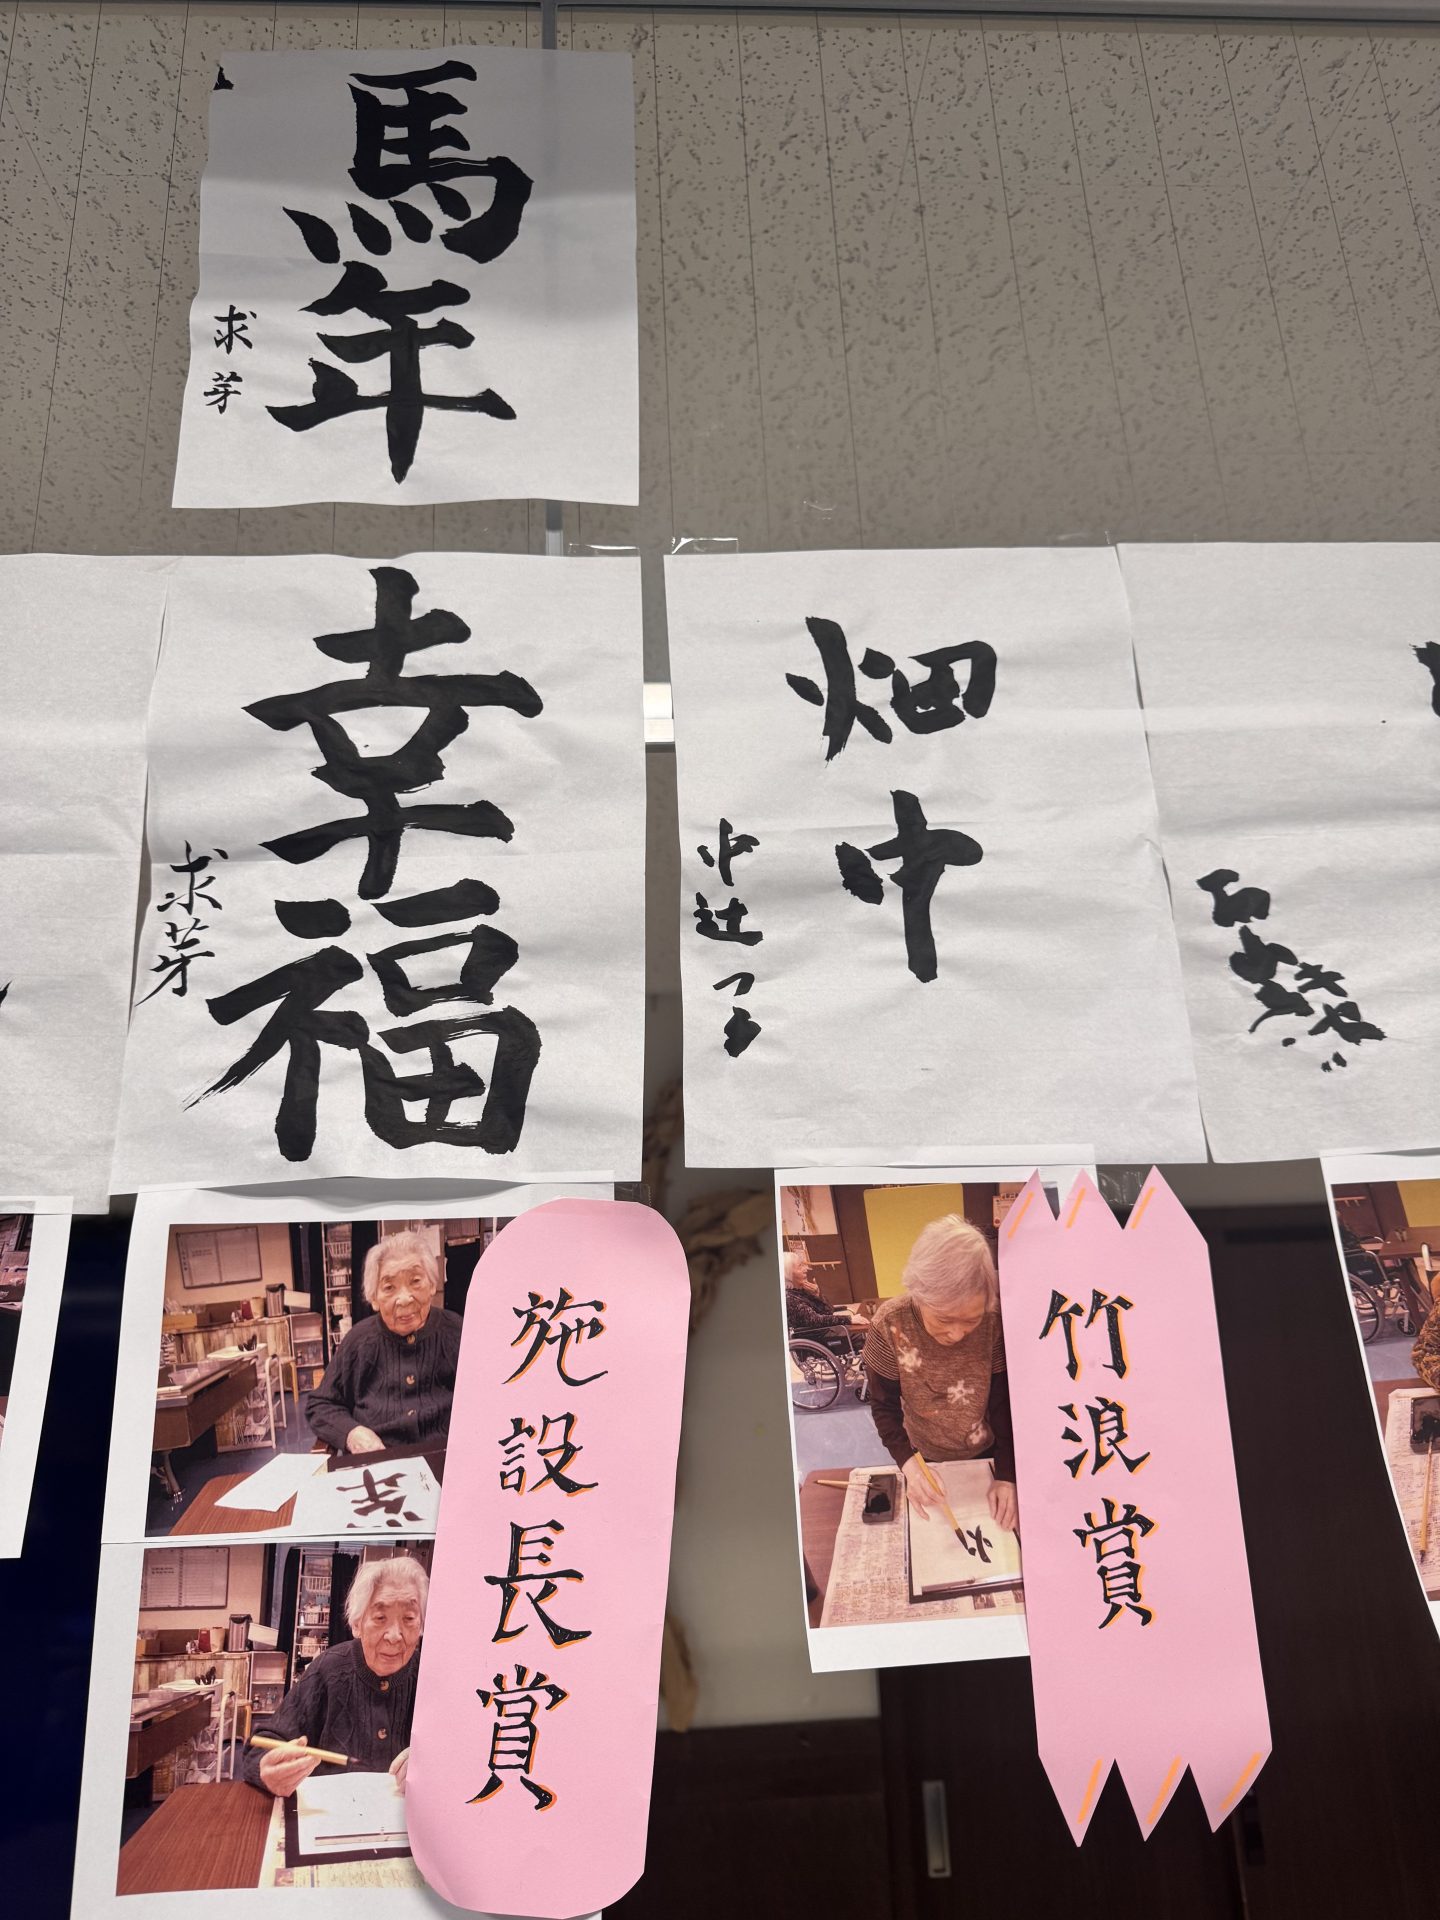 馬年
求芽
幸福
求芽
畑中
中辻つる
施設長賞
竹浪賞